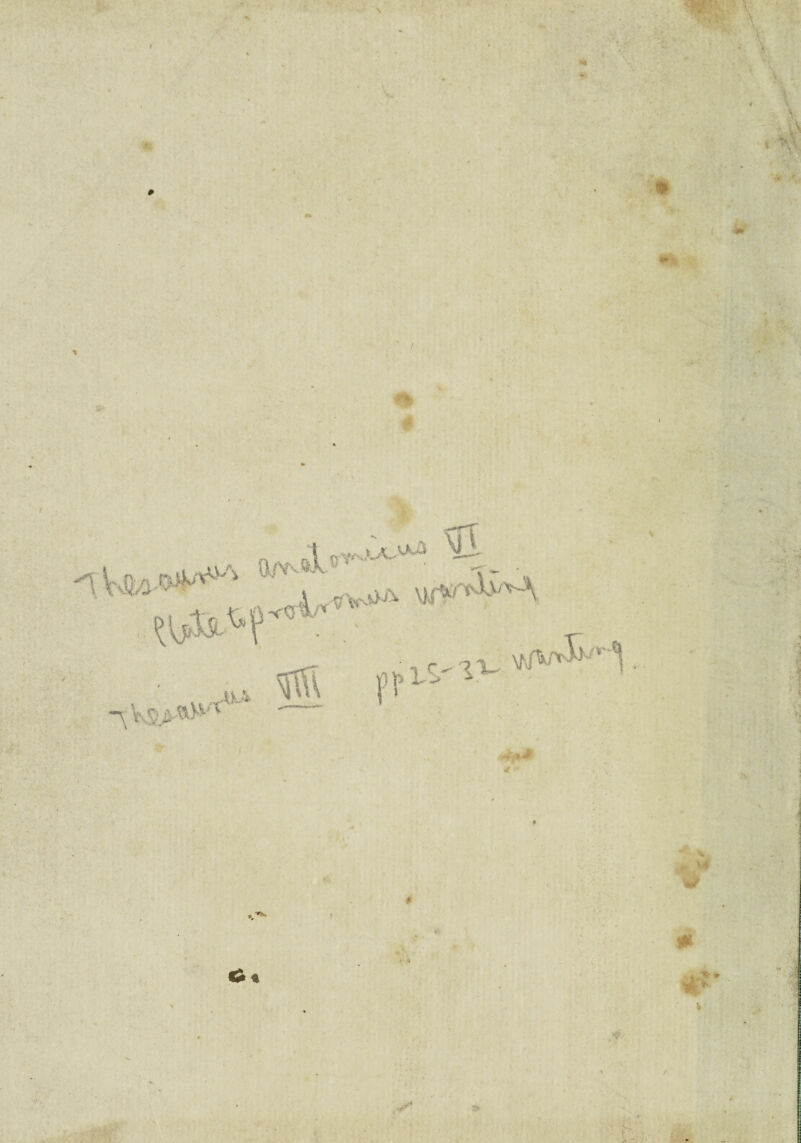 Thesaurus anatomicus VI
Plate to prodromus wanting
Thesaurus VIII pp 25-32 wanting.